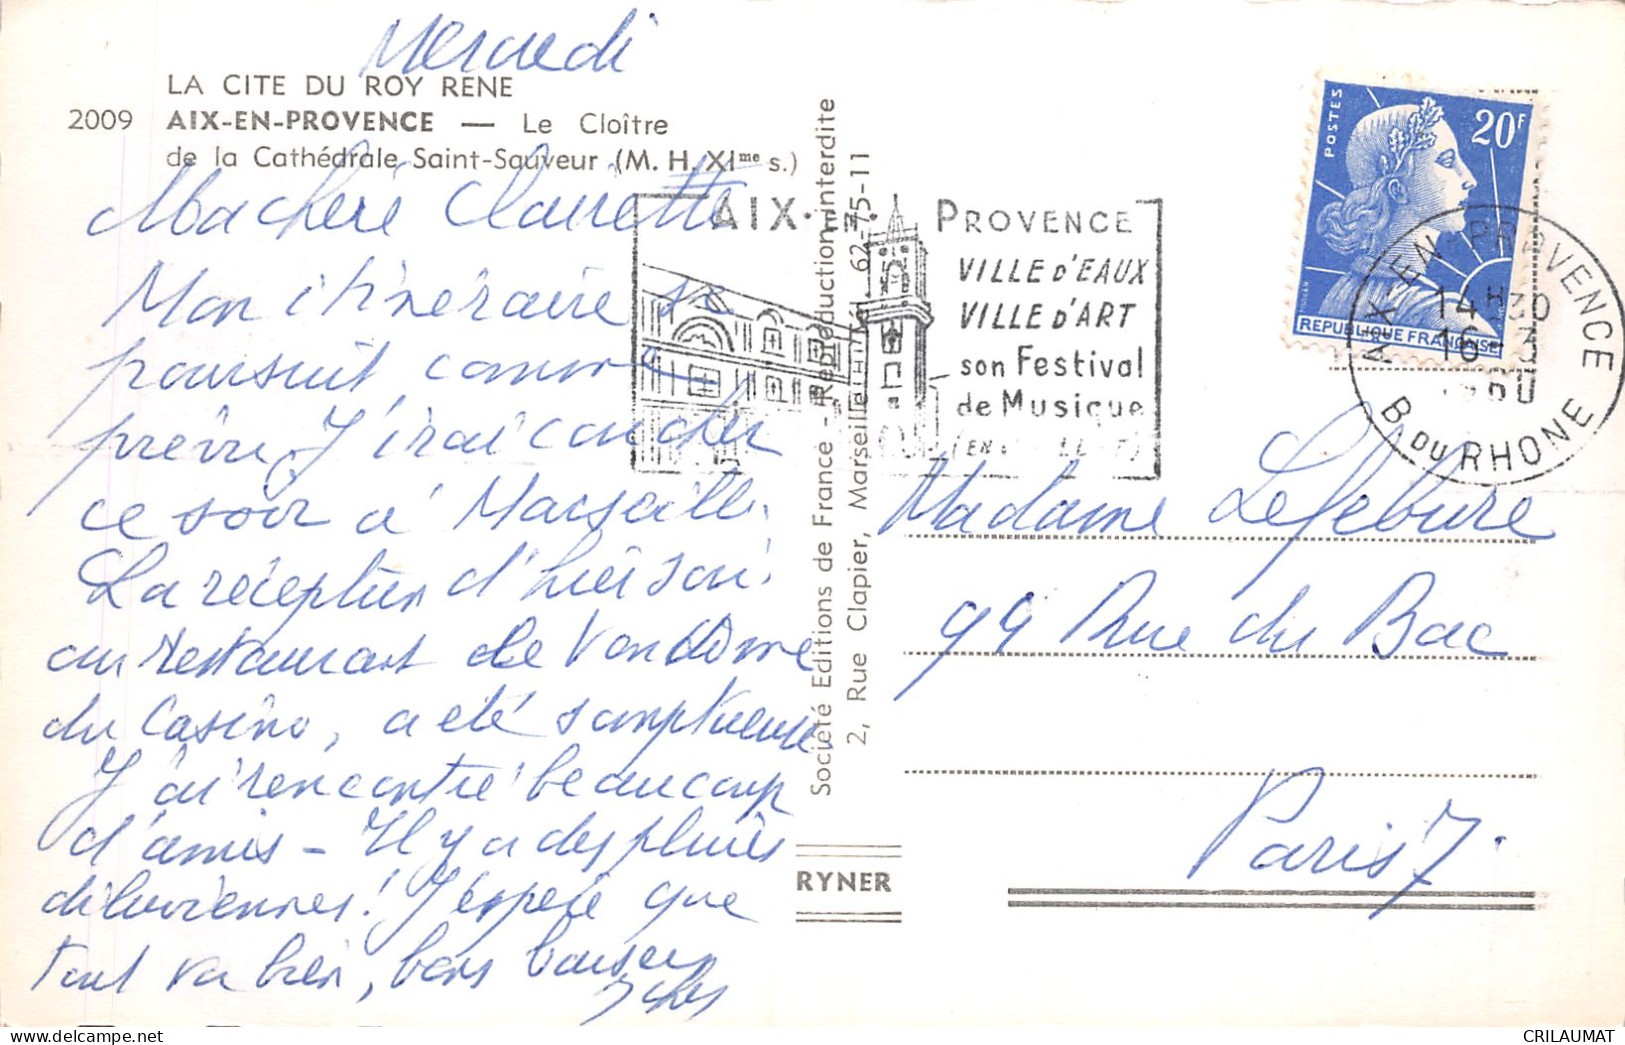 Mercredi
LA CITE DU ROY RENE
2009 AIX-EN-PROVENCE — Le Cloître
de la Cathédrale Saint-Sauveur (M. H. XIme s.)
Ma chère Clairette
Mon itinéraire se
poursuit comme
prévu. J'irai coucher
ce soir à Marseille.
La réception d'hier soir
au restaurant de Vendôme
du Casino, a été somptueuse
J'ai rencontré beaucoup
d'amis - Il y a des pluies
diluviennes! J'espère que
tout va bien, bons baisers
Société Editions de France - Reproduction interdite
2, Rue Clapier, Marseille 62-75-11
RYNER
AIX
PROVENCE
VILLE D'EAUX
VILLE D'ART
son Festival
de Musique
POSTES
20F
REPUBLIQUE FRANÇAISE
AIX-EN-PROVENCE
14H30
16-3
1960
B. DU RHONE
Madame Lefebure
99 Rue du Bac
Paris 7.
CRILAUMAT